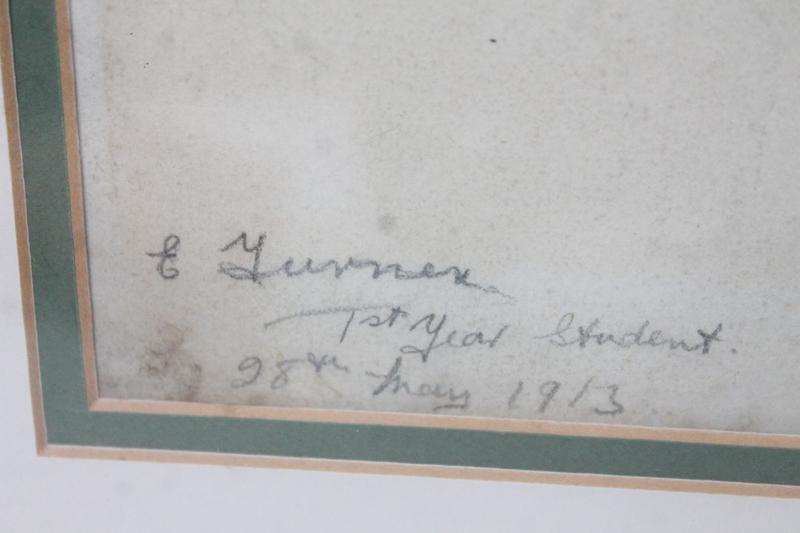 E Turner
1st Year Student.
28th May 1913